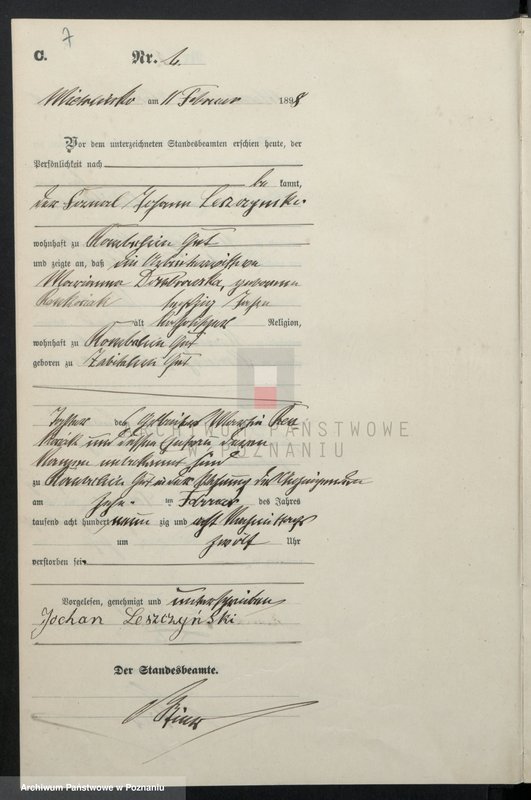 7
C.
Nr. 6.
am 11 Februar 1898
Vor dem unterzeichneten Standesbeamten erschien heute, der
Persönlichkeit nach
be kannt,
der Fornal Johann Leszczynski.
wohnhaft zu Gut
und zeigte an, daß die
Marianna Dombrowska, geborene
sechzig Jahre
alt katholischer Religion,
wohnhaft zu Gut
geboren zu Gut
Tochter des Martin
und dessen Ehefrau deren
Namen unbekannt sind
zu Gut in der Wohnung des Anzeigenden
am ten Februar des Jahres
tausend acht hundert neun zig und acht Nachmittags
um zwölf Uhr
verstorben sei
Vorgelesen, genehmigt und unterschrieben
Jochan Leszczyński
Der Standesbeamte.
ARCHIWUM PAŃSTWOWE
W POZNANIU
Archiwum Państwowe w Poznaniu